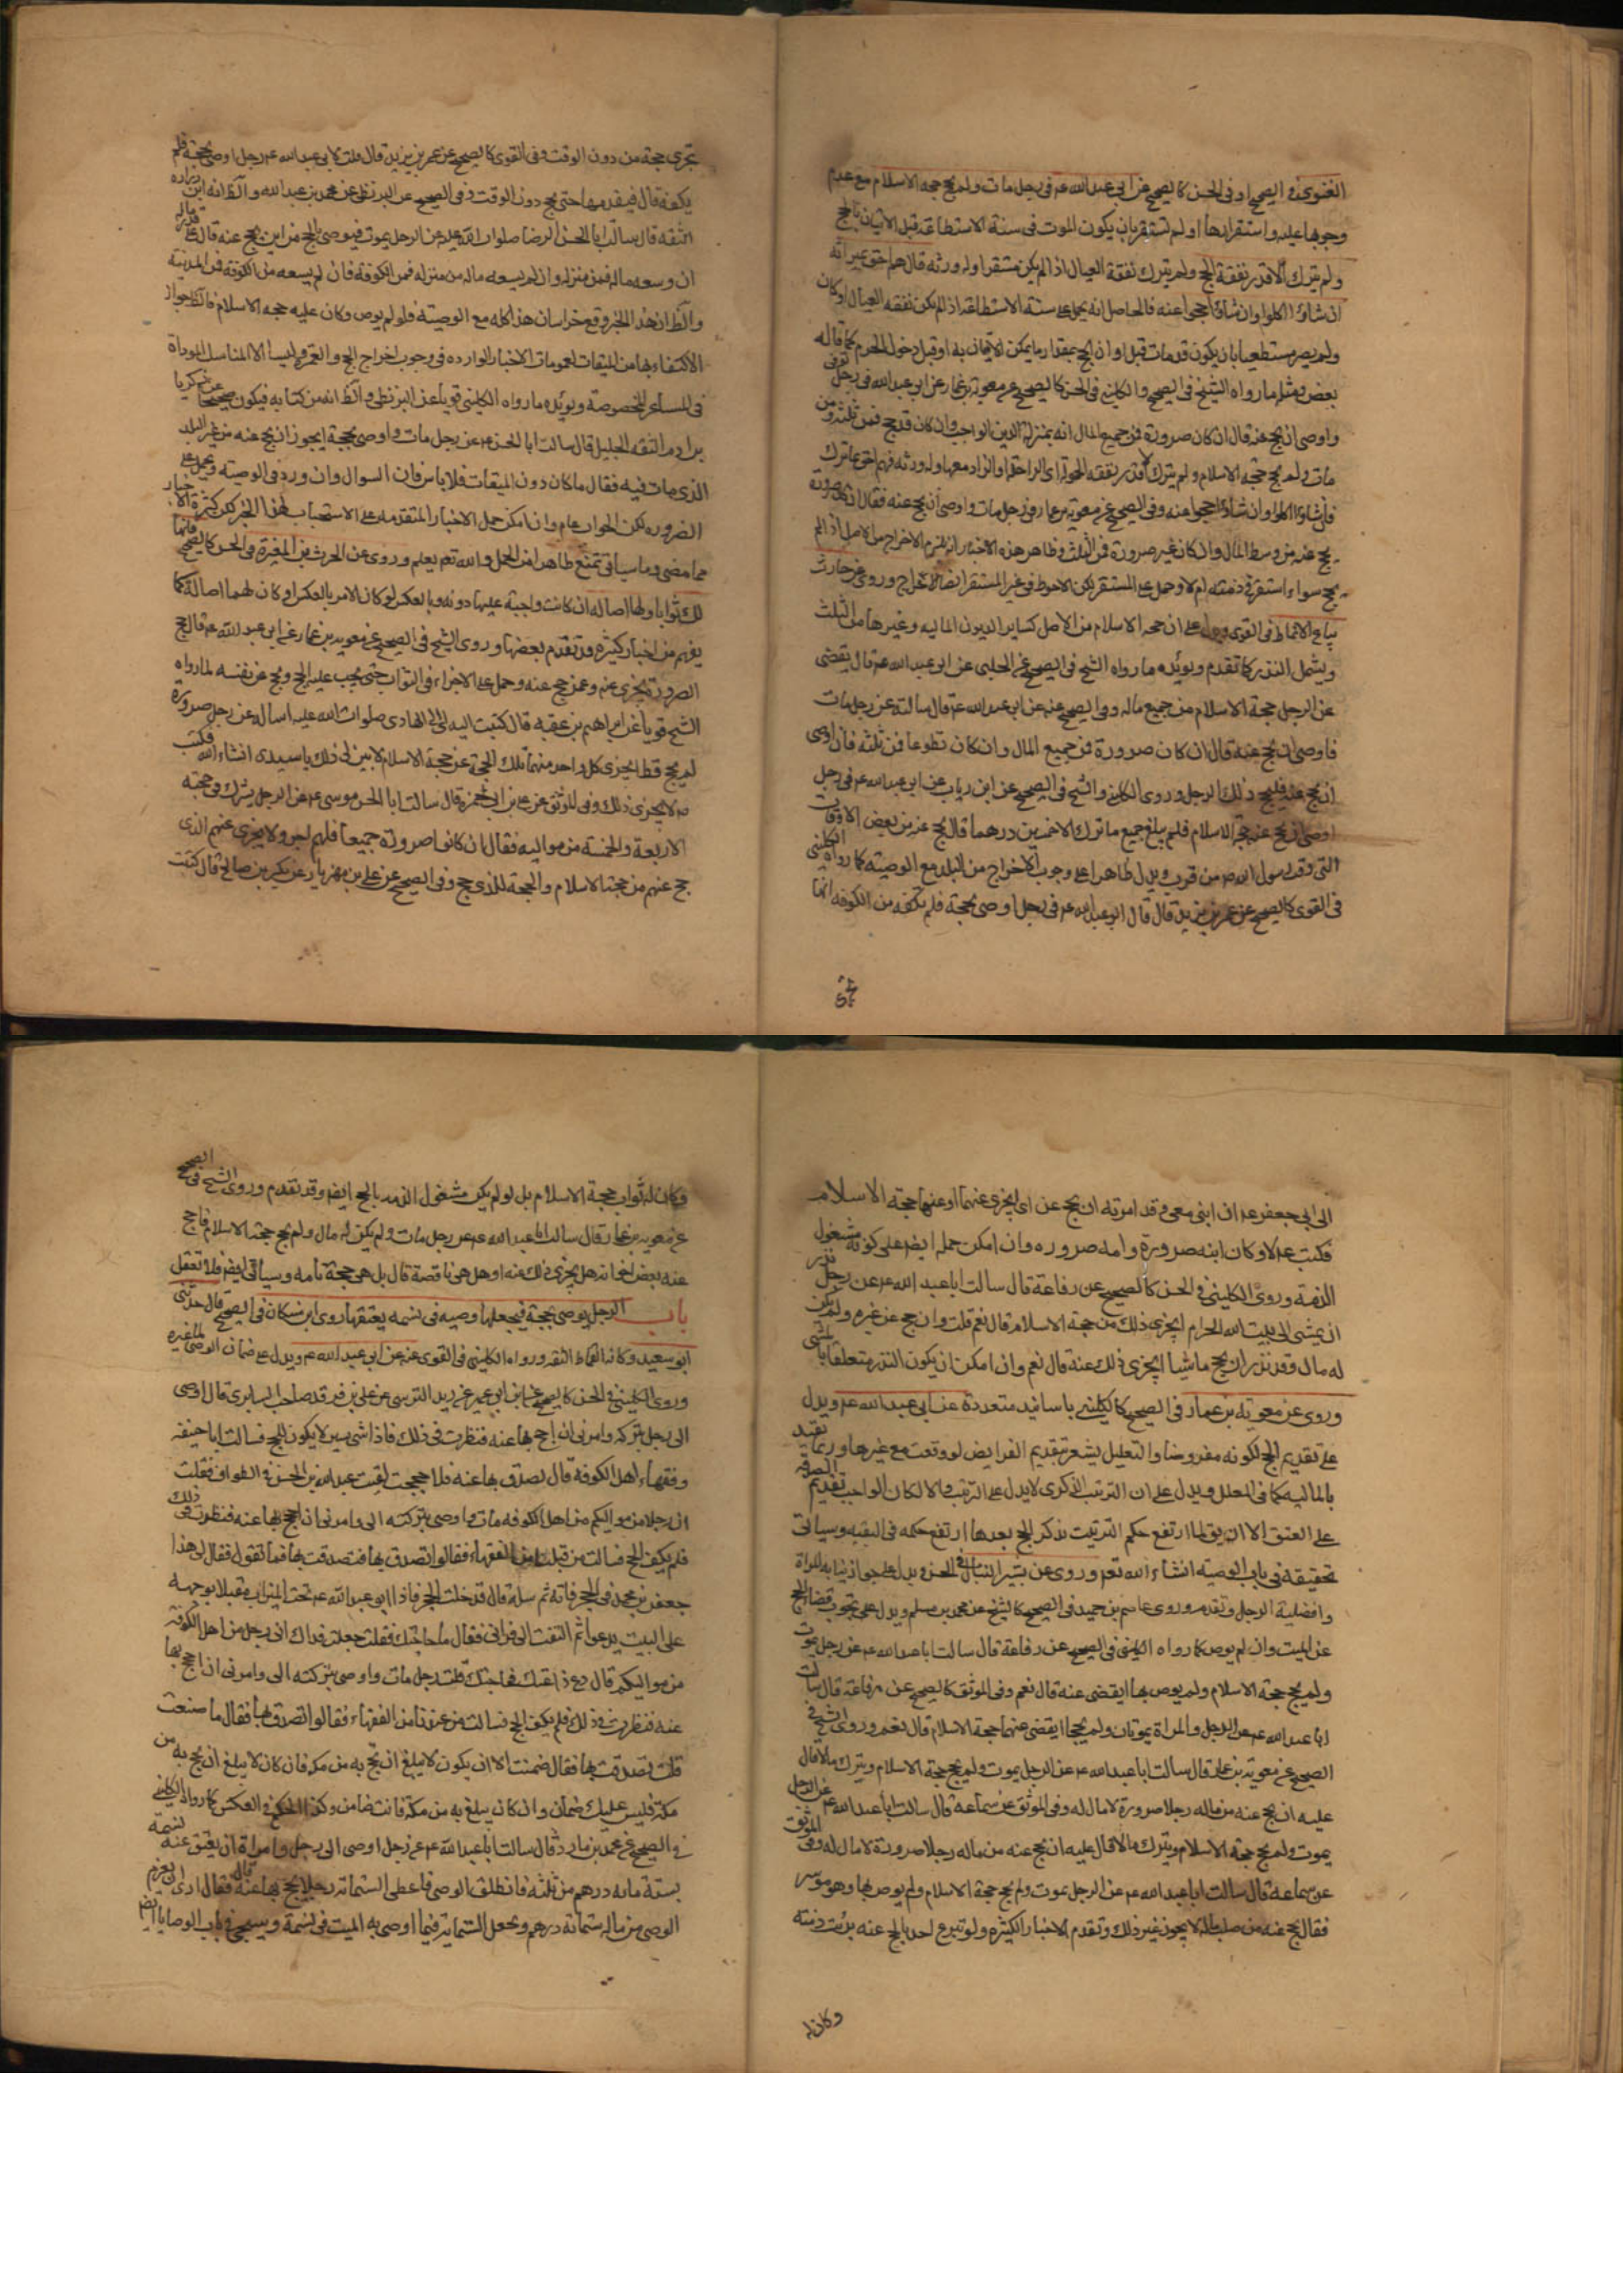 الغنوي في الصحيح او في الحسن كالصحيح عن ابي عبد الله عم في رجل مات ولم يحج حجة الاسلام مع عدم
وجوبها عليه واستقرارها او لم تستقر بان يكون الموت في سنة الاستطاعة قبل الاتيان بالحج
ولم يترك الا قدر نفقة الحج ولم يترك نفقة العيال اذا لم يكن مستقرا وله ورثه قال هم احق بميراثه
ان شاؤا اكلوا وان شاؤا حجوا عنه فالحاصل انه يحمل على سنة الاستطاعة اذا لم يكن نفقه العيال او كان
ولم يصر مستطيعا بان يكون قد مات قبل اوان الحج بمقدار ما يمكن الاتيان به او قبل دخول الحرم كما قاله
بعض ومثله ما رواه الشيخ في الصحيح والكليني في الحسن كالصحيح عن معوية بن عمار عن ابي عبد الله في رجل توفي
واوصى ان يحج عنه قال ان كان صرورة فمن جميع المال انه بمنزلة الدين الواجب وان كان قد حج فمن ثلثه ومن
مات ولم يحج حجة الاسلام ولم يترك الا قدر نفقه الحمولة اي الراحلة او الزاد معها وله ورثه فهم احق بما ترك
فان شاؤا اكلوا وان شاؤا حجوا عنه وفي الصحيح عن معوية بن عمار في رجل مات واوصى ان يحج عنه فقال ان كان صرورة
يحج عنه من وسط المال وان كان غير صرورة فمن الثلث وظاهر هذه الاخبار انه يلزم الاخراج من الاصل اذا لم
يحج سواء استقر في ذمته ام لا وحمل على المستقر لكن الاحوط في غير المستقر ايضا الاخراج وروي عن حارث
بياع الانماط في القوي ويدل على ان حجة الاسلام من الاصل كساير الديون الماليه وغيرها من الثلث
ويشمل النذر كما تقدم ويؤيده ما رواه الشيخ في الصحيح عن الحلبي عن ابي عبد الله عم قال يقضى
عن الرجل حجة الاسلام من جميع ماله وفي الصحيح عنه عن ابي عبد الله عم قال سالته عن رجل مات
فاوصى ان يحج عنه قال ان كان صرورة فمن جميع المال وان كان تطوعا فمن ثلثه فان اوصى
ان يحج عنه فليحج ذلك الرجل وروى الكليني والشيخ في الصحيح عن ابن رياب عن ابي عبد الله عم في رجل
اوصى ان يحج عنه حجة الاسلام فلم يبلغ جميع ما ترك الا خمسين درهما قال يحج عنه من بعض الاوقات
التي وقت رسول الله ص من قرب ويدل ظاهرا على وجوب الاخراج من البلد مع الوصية كما رواه الكليني
في القوي كالصحيح عن عمر بن يزيد قال قال ابو عبد الله عم في رجل اوصى بحجة فلم تكفه من الكوفه انها
تجزي حجته من دون الوقت وفي القوي كالصحيح عن عمر بن يزيد قال قلت لابي عبد الله عم رجل اوصى بحجة فلم
يكفه قال فيقدمها حتى يحج دون الوقت وفي الصحيح عن البزنطي عن محمد بن عبد الله والظ انه ابن زراره
الثقه قال سالت ابا الحسن الرضا صلوات الله عليه عن الرجل يموت فيوصي بالحج من اين يحج عنه قال على قدر ماله
ان وسعه ماله فمن منزله وان لم يسعه ماله من منزله فمن الكوفة فان لم يسعه من الكوفة فمن المدينة
والظ ان هذا الخبر وقع خراسان هذا كله مع الوصية فلو لم يوص وكان عليه حجة الاسلام فالظ جواز
الاكتفاء بها من الميقات لعمومات الاخبار الوارده في وجوب اخراج الحج والعمرة وليسا الا المناسك المؤداة
في المشاعر المخصوصة ويؤيده ما رواه الكليني قويا عن البزنطي والظ انه من كتابه فيكون صحيحا عن زكريا
بن ادم الثقه الجليل قال سالت ابا الحسن عم عن رجل مات واوصى بحجة ايجوز ان يحج عنه من غير البلد
الذي مات فيه فقال ما كان دون الميقات فلا باس فان السوال وان ورد في الوصيه ويحمل على
الضروره لكن الجواب عام وان امكن حمل الاخبار المتقدمة على الاستحباب لهذا الخبر لكن كثرة الاخبار
مما مضى وما سياتي تمنع ظاهرا من الحمل والله تعم يعلم وروى عن الحرث بن المغيرة في الحسن كالصحيح فانما
لك ثوابا ولها اصاله ان كانت واجبة عليها دونه وبالعكس لو كان الامر بالعكس او كان لهما اصالة كما
يفهم من اخبار كثيرة وقد تقدم بعضها وروى الشيخ في الصحيح عن معوية بن عمار عن ابي عبد الله عم قال حج
الصرورة يجزي عنه وعمن حج عنه وحمل على الاجزاء في الثواب حتى يجب عليه الحج ويحج عن نفسه لما رواه
الشيخ قويا عن ابراهيم بن عقبه قال كتبت اليه اي الى الهادي صلوات الله عليه اساله عن رجل صرورة
لم يحج قط ايجزي كل واحد منهما تلك الحجة عن حجة الاسلام الا بين لي ذلك يا سيدي انشاء الله فكتب
عم لا يجزي ذلك وفي الموثق عن علي بن ابي حمزة قال سالت ابا الحسن موسى عم عن الرجل يشرك في حجته
الاربعة والخمسة من مواليه فقال ان كانوا صرورة جميعا فلهم اجر ولا يجزي عنهم الذي
حج عنهم من حجة الاسلام والحجة للذي حج وفي الصحيح عن علي بن مهزيار عن بكر بن صالح قال كتبت
الى ابي جعفر عم ان ابني معي وقد امرته ان يحج عن امي ايجزي عنهما او عنها حجة الاسلام
فكتب عم لا وكان ابنه صرورة وامه صروره وان امكن حمله ايضا على كونه مشغول
الذمة وروى الكليني في الحسن كالصحيح عن رفاعة قال سالت ابا عبد الله عم عن رجل نذر
ان يمشي الى بيت الله الحرام ايجزي ذلك من حجة الاسلام قال نعم قلت وان حج عن غيره ولم يكن
له مال وقد نذر ان يحج ماشيا ايجزي ذلك عنه قال نعم وان امكن ان يكون النذر متعلقا بالمشي
وروى عن معوية بن عمار في الصحيح كالكليني باسانيد متعددة عن ابي عبد الله عم ويدل
على تقديم الحج لكونه مفروضا والتعليل يشعر بتقديم الفرايض لو وقعت مع غيرها وربما يقيد
بالماليه كما في المعلل ويدل على ان الترتيب الذكري لا يدل على الترتيب والا لكان الواجب تقديم الصدقه
على العتق الا ان يق لما ارتفع حكم الترتيب بذكر الحج بعدها ارتفع حكمه في البقيه وسياتي
تحقيقه في باب الوصيه انشاء الله تعم وروى عن بشير النبال في الحسن ويدل على جواز نيابه المراة
وافضلية الرجل وتقدم وروى عاصم بن حميد في الصحيح كالشيخ عن محمد بن مسلم ويدل على وجوب قضاء الحج
عن الميت وان لم يوص كما رواه الكليني في الصحيح عن رفاعة قال سالت ابا عبد الله عم عن رجل يموت
ولم يحج حجة الاسلام ولم يوص بها ايقضى عنه قال نعم وفي الموثق كالصحيح عن رفاعة قال سالت
ابا عبد الله عم عن الرجل والمراة يموتان ولم يحجا ايقضى عنهما حجة الاسلام قال نعم وروى الشيخ في
الصحيح عن معوية بن عمار قال سالت ابا عبد الله عم عن الرجل يموت ولم يحج حجة الاسلام ويترك مالا قال
عليه ان يحج عنه من ماله رجلا صرورة لا مال له وفي الموثق عن سماعة قال سالت ابا عبد الله عم عن الرجل
يموت ولم يحج حجة الاسلام ويترك مالا قال عليه ان يحج عنه من ماله رجلا صرورة لا مال له وفي الموثق
عن سماعة قال سالت ابا عبد الله عم عن الرجل يموت ولم يحج حجة الاسلام ولم يوص بها وهو موسر
فقال يحج عنه من صلب ماله لا يجوز غير ذلك وتقدم الاخبار الكثيره ولو تبرع احد بالحج عنه برئت ذمته
وكان له
وكان له ثواب حجة الاسلام بل لو لم يكن مشغول الذمه بالحج ايضا وقد تقدم وروى الشيخ في الصحيح
عن معوية بن عمار قال سالت ابا عبد الله عم عن رجل مات ولم يكن له مال ولم يحج حجة الاسلام فاحج
عنه بعض اخوانه هل يجزي ذلك عنه او هل هي ناقصة قال بل هي حجة تامه وسياتي ايضا فلا تغفل
باب الرجل يوصي بحجة فيجعلها وصيه في نسمه يعتقها روى ابن مسكان في الصحيح قال حدثني
ابو سعيد وكانه القماط الثقه ورواه الكليني في القوي عنه عن ابي عبد الله عم ويدل على ضمان الوصي بالتغيير
وروى الكليني في الحسن كالصحيح عن ابن ابي عمير عن زيد النرسي عن علي بن فرقد صاحب السابري قال اوصى
الى رجل بتركته وامرني ان احج بها عنه فنظرت في ذلك فاذا شيء يسير لا يكون للحج فسالت ابا حنيفه
وفقهاء اهل الكوفة قال تصدق بها عنه فلما حججت لقيت عبد الله بن الحسن في الطواف فقلت
ان رجلا من مواليكم من اهل الكوفه مات واوصى بتركته الي وامرني ان احج بها عنه فنظرت في ذلك
فلم يكف للحج فسالت من قبلنا من الفقهاء فقالوا تصدق بها فتصدقت بها فما تقول فقال لي هذا
جعفر بن محمد في الحجر فاته ثم سله قال قد دخلت الحجر فاذا ابو عبد الله عم تحت الميزاب مقبل بوجهه
على البيت يدعو ثم التفت الي فراني فقال ما حاجتك فقلت جعلت فداك اني رجل من اهل الكوفة
من مواليكم قال دع ذا عنك فما حاجتك قلت رجل مات واوصى بتركته الي وامرني ان احج بها
عنه فنظرت في ذلك فلم يكف للحج فسالت من عندنا من الفقهاء فقالوا تصدق بها فقال ما صنعت
قلت تصدقت بها فقال ضمنت الا ان يكون لا يبلغ ان يحج به من مكة فان كان لا يبلغ ان يحج به من
مكة فليس عليك ضمان وان كان يبلغ به من مكة فانت ضامن وكذا الحكم في العكس كما رواه الكليني
في الصحيح عن محمد بن مارد قال سالت ابا عبد الله عم عن رجل اوصى الى رجل وامراة ان يعتق عنه نسمة
بستة مايه درهم من ثلثه فانطلق الوصي فاعطى الستمائة رجلا يحج بها عنه قال فقال ارى ان يغرم
الوصي من ماله ستمائة درهم ويجعل الستمائة فيما اوصى به الميت في نسمة وسيجيء في باب الوصايا ايضا